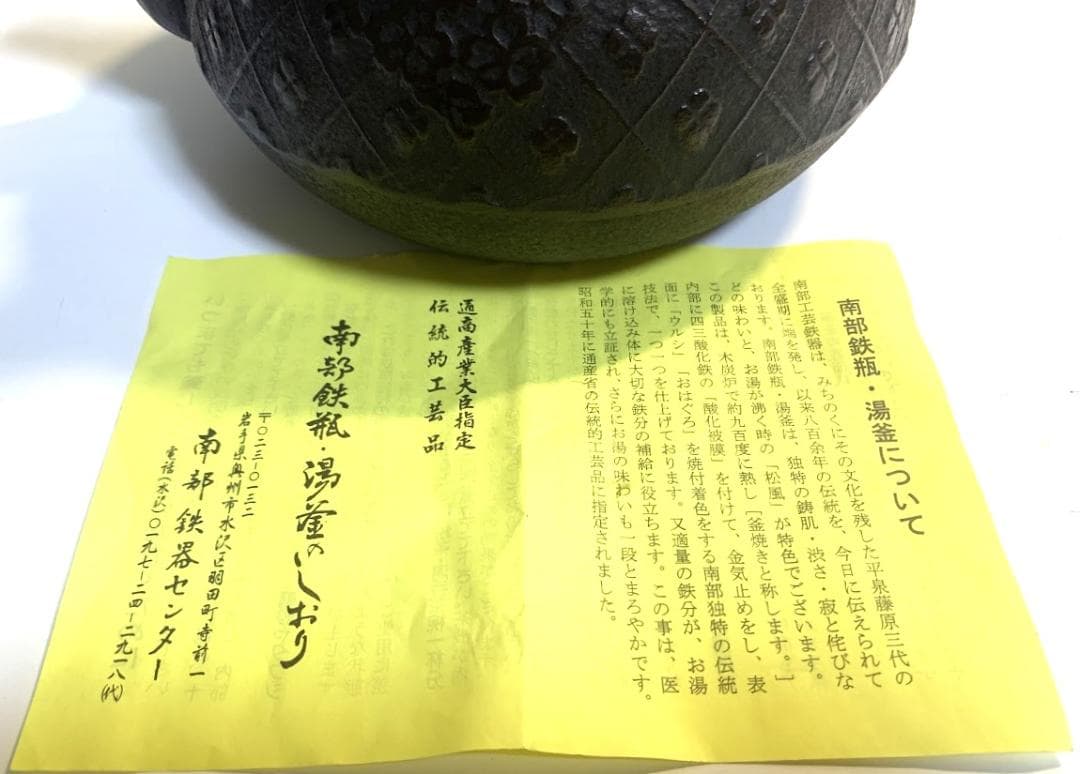 南部鉄瓶・湯釜について
南部工芸鉄器は、みちのくにその文化を残した平泉藤原三代の
全盛期に端を発し、以来八百余年の伝統を、今日に伝えられて
おります。南部鉄瓶・湯釜は、独特の鋳肌・渋さ・寂と侘びな
どの味わいと、お湯が沸く時の「松風」が特色でございます。
この製品は、木炭炉で約九百度に熱し［釜焼きと称します。］
内部に四三酸化鉄の「酸化被膜」を付けて、金気止めをし、表
面に「ウルシ」「おはぐろ」を焼付着色をする南部独特の伝統
技法で、一つ一つを仕上げております。又適量の鉄分が、お湯
に溶け込み体に大切な鉄分の補給に役立ちます。この事は、医
学的にも立証され、さらにお湯の味わいも一段とまろやかです。
昭和五十年に通産省の伝統的工芸品に指定されました。
通商産業大臣指定
伝統的工芸品
南部鉄瓶・湯釜のしおり
〒〇二三－〇一三二
岩手県奥州市水沢区羽田町寺前一
南部鉄器センター
電話(水沢)〇一九七－二四－二九一八(代)